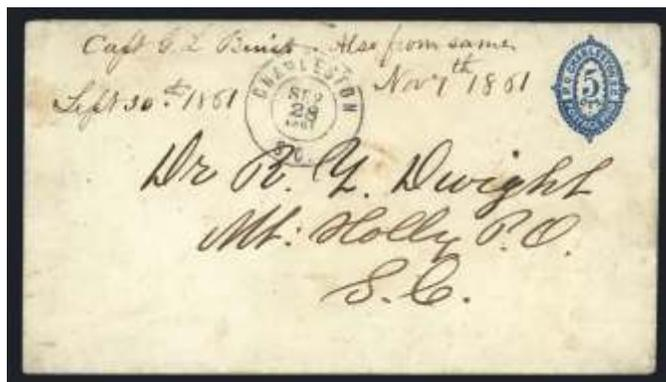 Capt G. L. Buist. Also from same
Sept 30th 1861
Nov 7th 1861
CHARLESTON
SEP
28
1861
S.C.
P.O. CHARLESTON S.C.
5
CTS.
POSTAGE PAID
Dr R. Y. Dwight
Mt: Holly P.O.
S.C.